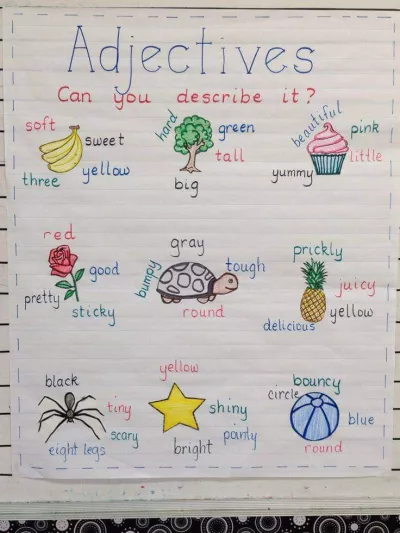 Adjectives
Can you describe it?
soft
sweet
yellow
three
hard
green
tall
big
beautiful
pink
little
yummy
red
good
pretty
sticky
gray
bumpy
tough
round
prickly
juicy
yellow
delicious
black
tiny
scary
eight legs
yellow
shiny
pointy
bright
bouncy
circle
blue
round